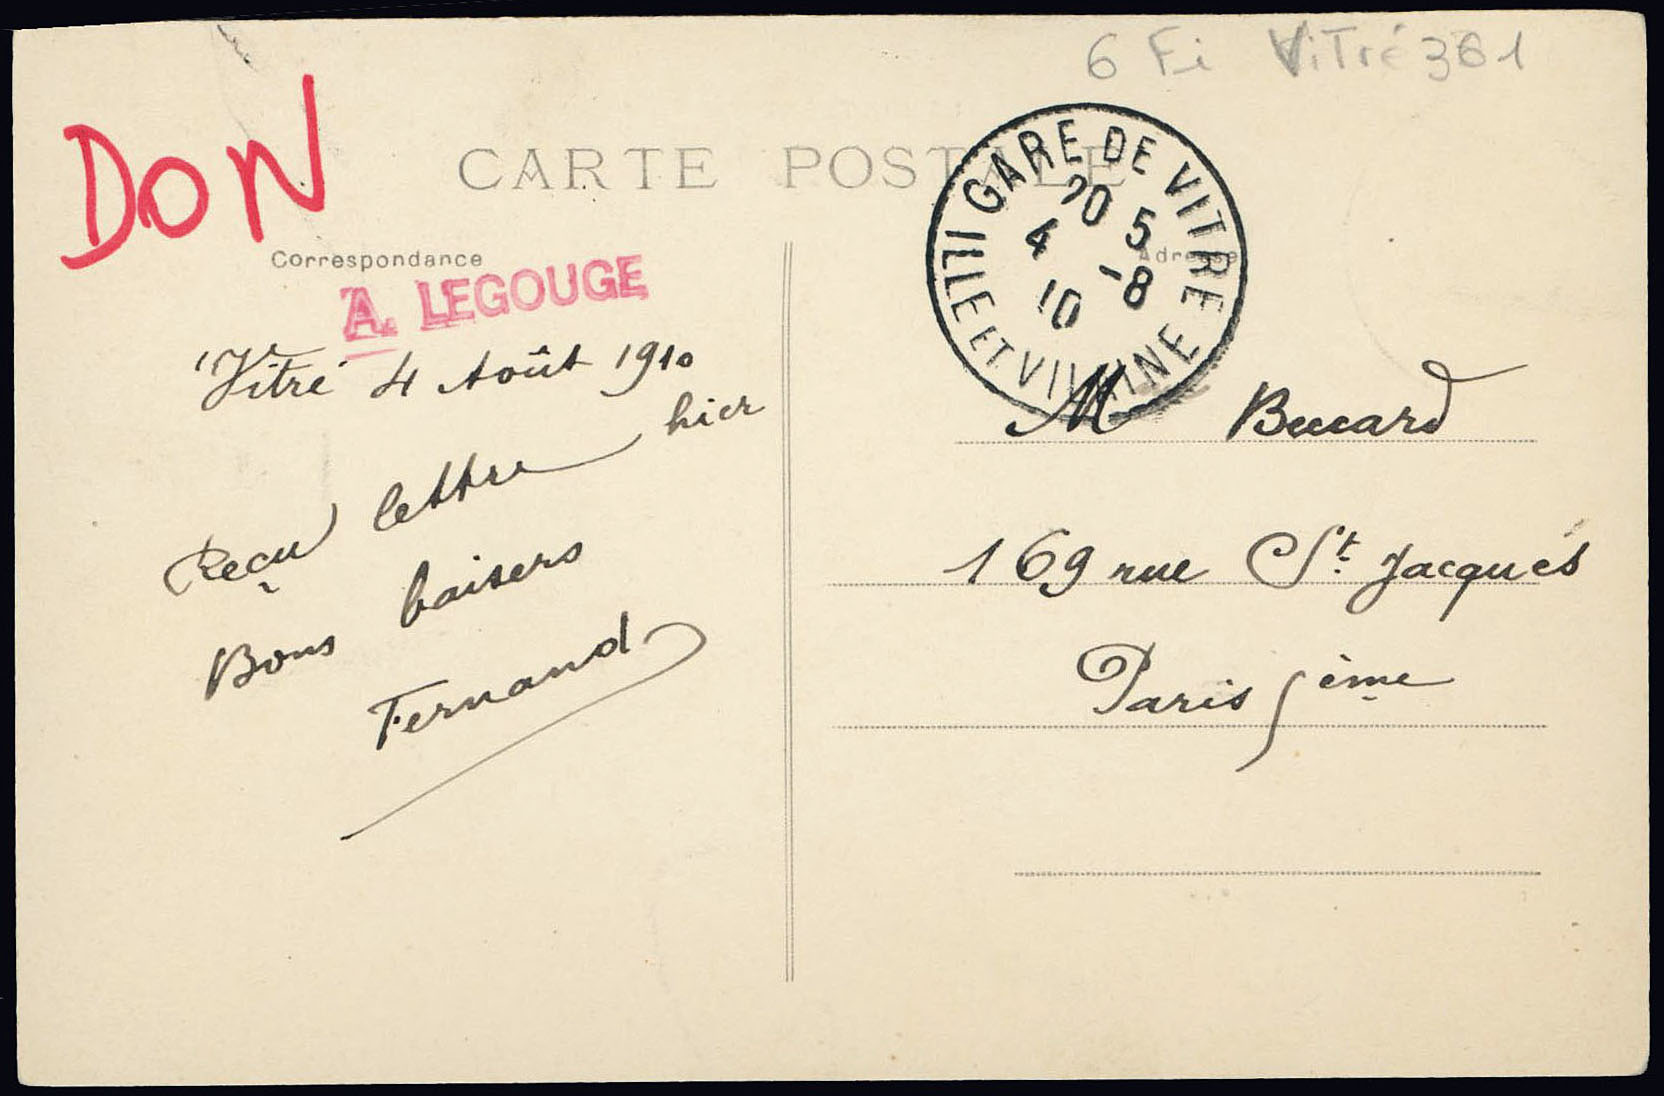 6 Fi Vitré 361
DON
CARTE POSTALE
GARE DE VITRE
ILLE ET VILAINE
20 5
4 -8
10
Correspondance
Adresse
A. LEGOUGE
Vitré 4 Août 1910
Reçu lettre hier
Bons baisers
Fernand
M Bucard
169 rue St. Jacques
Paris 5ème